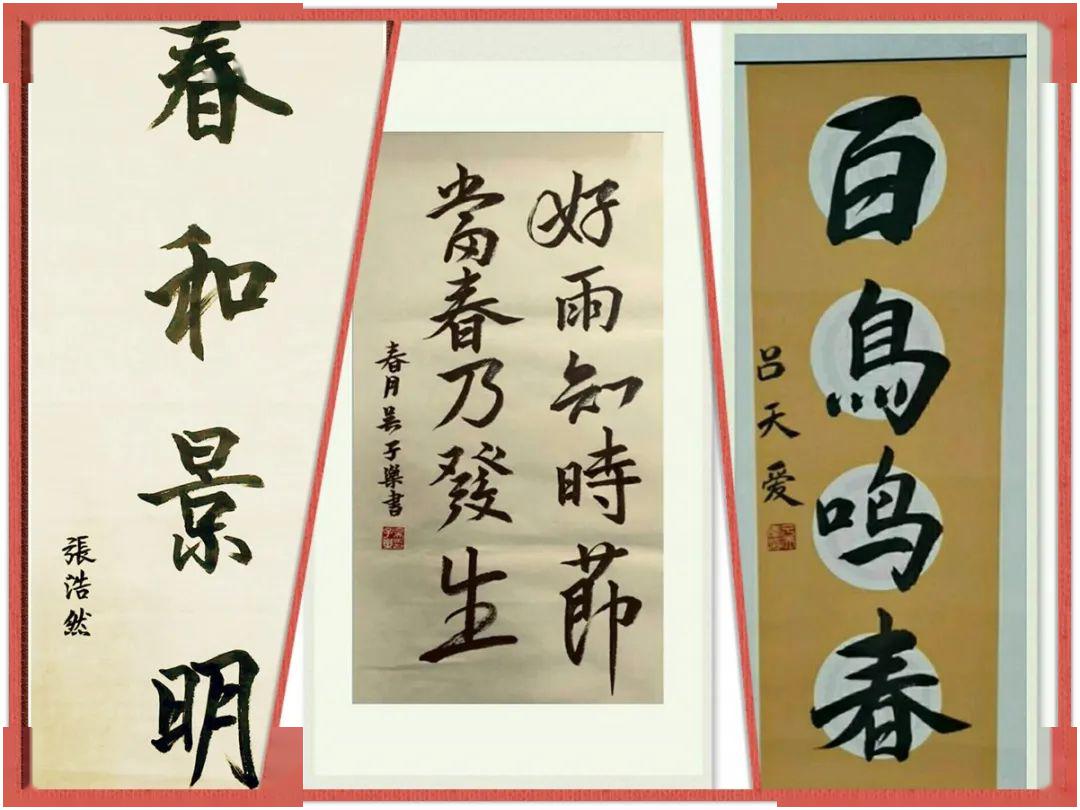 春和景明
張浩然
好雨知時節
當春乃發生
春月吴子樂书
百鳥鸣春
吕天爱